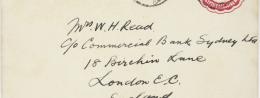 Mrs W. H. Read
c/o Commercial Bank Sydney Ltd
18 Birchin Lane
London E.C.
England